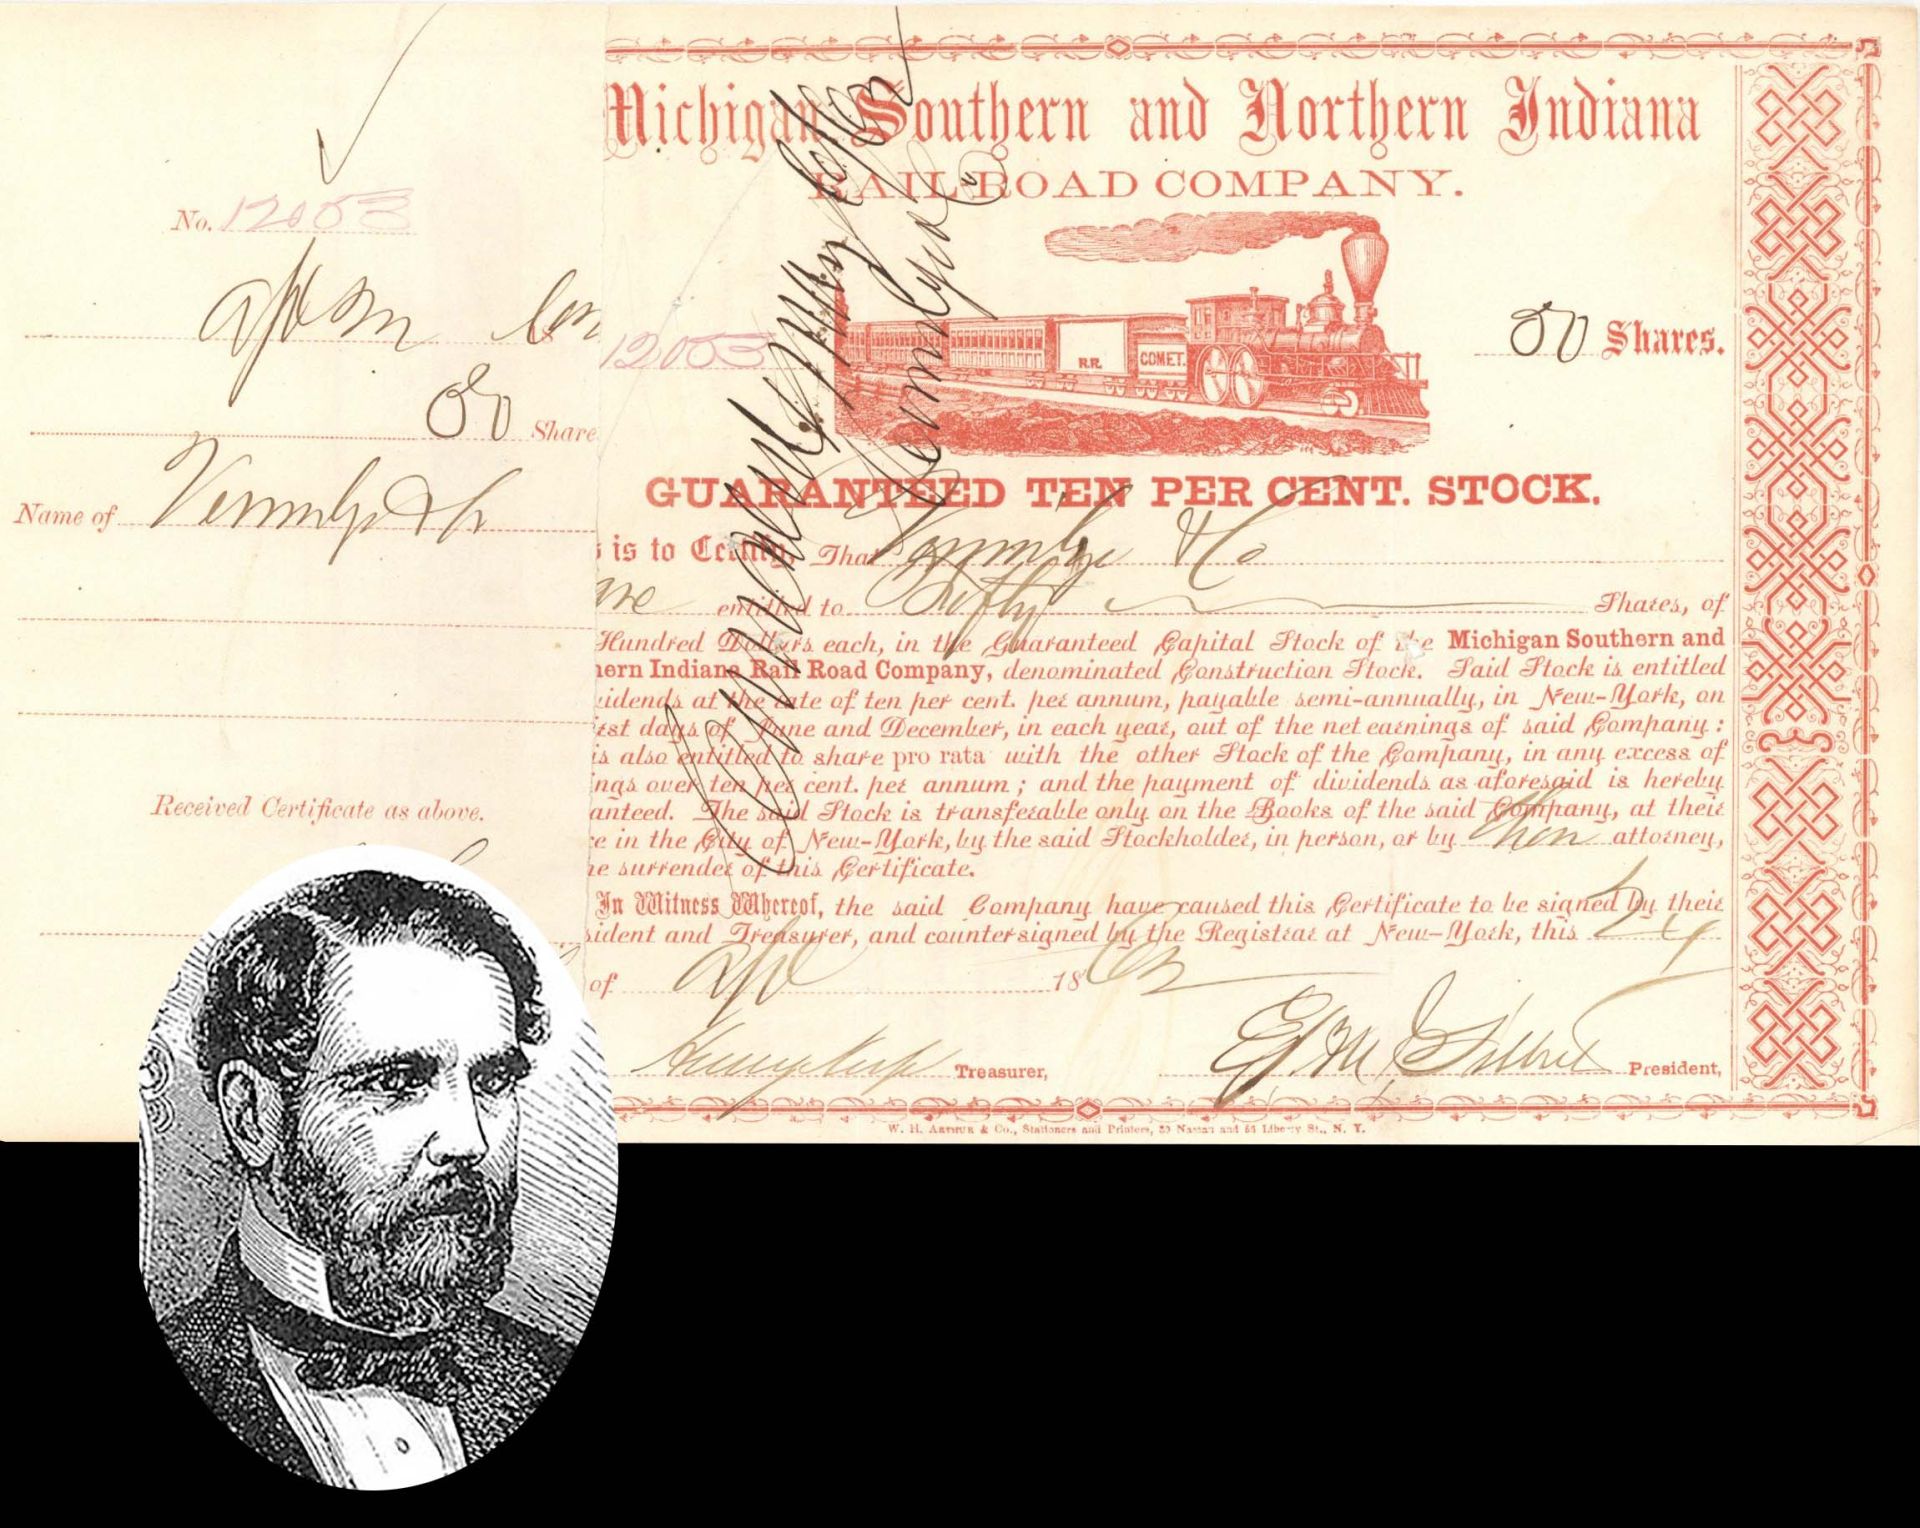 No. 12053
50 Share
Name of Vermilye & Co
Received Certificate as above.
Michigan Southern and Northern Indiana
RAIL-ROAD COMPANY.
12053
R.R.
COMET.
50 Shares.
GUARANTEED TEN PER CENT. STOCK.
is to Certify, That Vermilye & Co
are entitled to Fifty Shares, of
Hundred Dollars each, in the Guaranteed Capital Stock of the Michigan Southern and
hern Indiana Rail Road Company, denominated Construction Stock. Said Stock is entitled
idends at the rate of ten per cent. per annum, payable semi-annually, in New-York, on
irst days of June and December, in each year, out of the net earnings of said Company:
is also entitled to share pro rata with the other Stock of the Company, in any excess of
ings over ten per cent. per annum; and the payment of dividends as aforesaid is hereby
anteed. The said Stock is transferable only on the Books of the said Company, at their
e in the City of New-York, by the said Stockholder, in person, or by their attorney,
he surrender of this Certificate.
In Witness Whereof, the said Company have caused this Certificate to be signed by their
sident and Treasurer, and countersigned by the Registrar at New-York, this 24
of 18
Treasurer,
President,
W. H. Arthur & Co., Stationers and Printers, 39 Nassau and 54 Liberty St., N. Y.